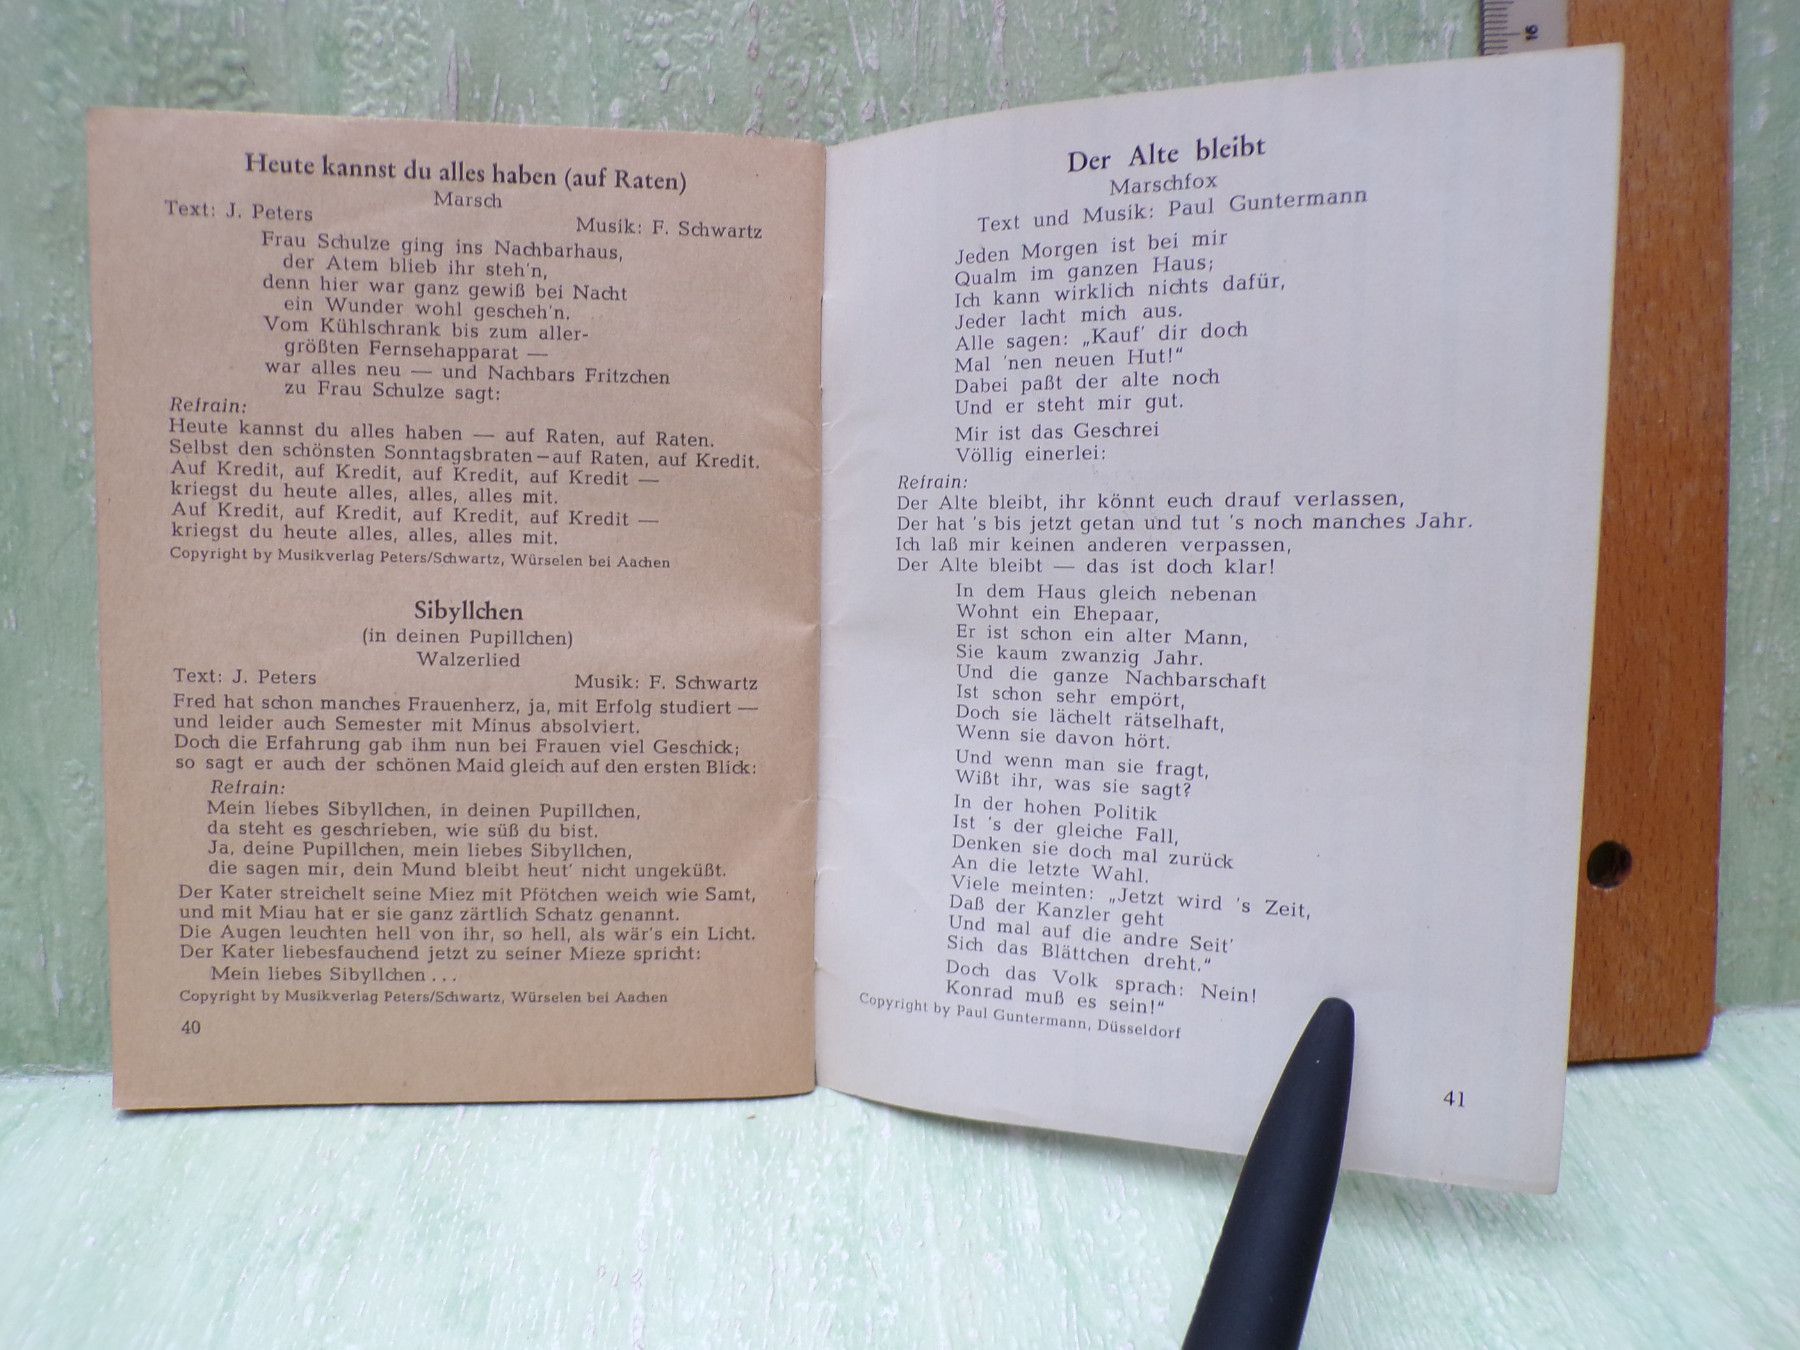 Heute kannst du alles haben (auf Raten)
Marsch
Text: J. Peters
Musik: F. Schwartz
Frau Schulze ging ins Nachbarhaus,
der Atem blieb ihr steh'n,
denn hier war ganz gewiß bei Nacht
ein Wunder wohl gescheh'n.
Vom Kühlschrank bis zum aller-
größten Fernsehapparat —
war alles neu — und Nachbars Fritzchen
zu Frau Schulze sagt:
Refrain:
Heute kannst du alles haben — auf Raten, auf Raten.
Selbst den schönsten Sonntagsbraten — auf Raten, auf Kredit.
Auf Kredit, auf Kredit, auf Kredit, auf Kredit —
kriegst du heute alles, alles, alles mit.
Auf Kredit, auf Kredit, auf Kredit, auf Kredit —
kriegst du heute alles, alles, alles mit.
Copyright by Musikverlag Peters/Schwartz, Würselen bei Aachen
Sibyllchen
(in deinen Pupillchen)
Walzerlied
Text: J. Peters
Musik: F. Schwartz
Fred hat schon manches Frauenherz, ja, mit Erfolg studiert —
und leider auch Semester mit Minus absolviert.
Doch die Erfahrung gab ihm nun bei Frauen viel Geschick;
so sagt er auch der schönen Maid gleich auf den ersten Blick:
Refrain:
Mein liebes Sibyllchen, in deinen Pupillchen,
da steht es geschrieben, wie süß du bist.
Ja, deine Pupillchen, mein liebes Sibyllchen,
die sagen mir, dein Mund bleibt heut' nicht ungeküßt.
Der Kater streichelt seine Miez mit Pfötchen weich wie Samt,
und mit Miau hat er sie ganz zärtlich Schatz genannt.
Die Augen leuchten hell von ihr, so hell, als wär's ein Licht.
Der Kater liebesfauchend jetzt zu seiner Mieze spricht:
Mein liebes Sibyllchen . . .
Copyright by Musikverlag Peters/Schwartz, Würselen bei Aachen
40
Der Alte bleibt
Marschfox
Text und Musik: Paul Guntermann
Jeden Morgen ist bei mir
Qualm im ganzen Haus;
Ich kann wirklich nichts dafür,
Jeder lacht mich aus.
Alle sagen: „Kauf' dir doch
Mal 'nen neuen Hut!“
Dabei paßt der alte noch
Und er steht mir gut.
Mir ist das Geschrei
Völlig einerlei:
Refrain:
Der Alte bleibt, ihr könnt euch drauf verlassen,
Der hat 's bis jetzt getan und tut 's noch manches Jahr.
Ich laß mir keinen anderen verpassen,
Der Alte bleibt — das ist doch klar!
In dem Haus gleich nebenan
Wohnt ein Ehepaar,
Er ist schon ein alter Mann,
Sie kaum zwanzig Jahr.
Und die ganze Nachbarschaft
Ist schon sehr empört,
Doch sie lächelt rätselhaft,
Wenn sie davon hört.
Und wenn man sie fragt,
Wißt ihr, was sie sagt?
In der hohen Politik
Ist 's der gleiche Fall,
Denken sie doch mal zurück
An die letzte Wahl.
Viele meinten: „Jetzt wird 's Zeit,
Daß der Kanzler geht
Und mal auf die andre Seit'
Sich das Blättchen dreht.“
Doch das Volk sprach: Nein!
Konrad muß es sein!“
Copyright by Paul Guntermann, Düsseldorf
41
16